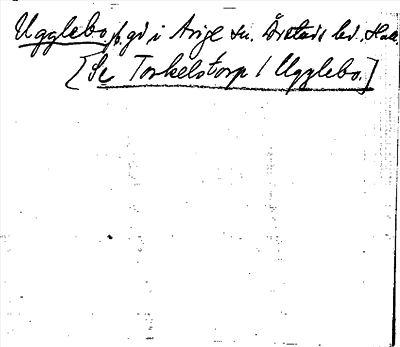 Ugglebo, p. gd i Arige sn. Årstads hd. Hall.
[Se Torkelstorp / Ugglebo.]